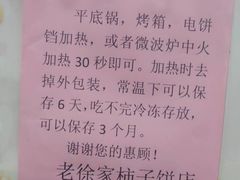 平底锅，烤箱，电饼
铛加热，或者微波炉中火
加热 30 秒即可。加热时去
掉外包装，常温下可以保
存 6 天，吃不完冷冻存放，
可以保存 3 个月。
谢谢您的惠顾！
老徐家柿子饼店